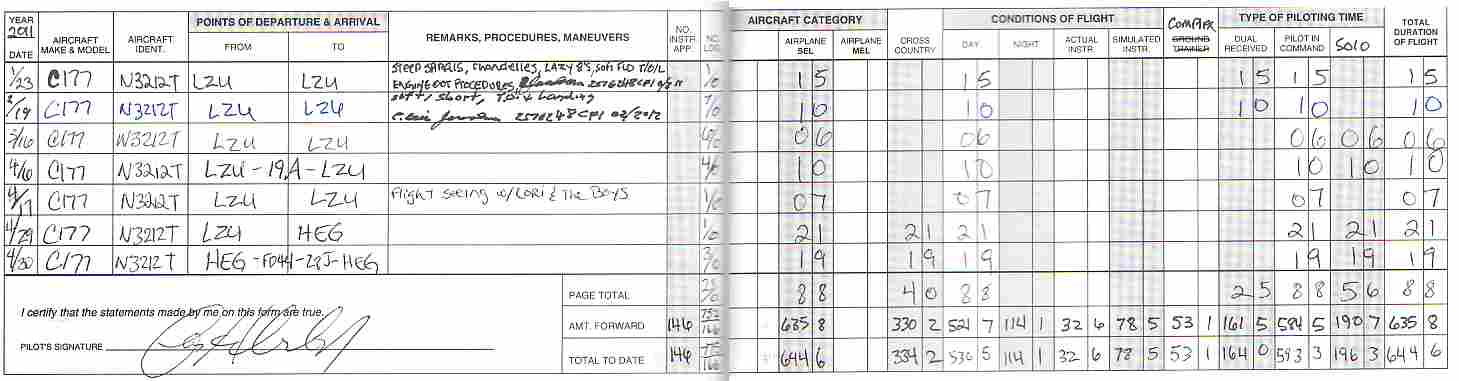 YEAR 2011 DATE AIRCRAFT MAKE & MODEL AIRCRAFT IDENT. POINTS OF DEPARTURE & ARRIVAL FROM TO REMARKS, PROCEDURES, MANEUVERS NO. INSTR. APP. NO. LDG. AIRCRAFT CATEGORY AIRPLANE SEL AIRPLANE MEL CROSS COUNTRY CONDITIONS OF FLIGHT DAY NIGHT ACTUAL INSTR. SIMULATED INSTR. COMPLEX GROUND TRAINER TYPE OF PILOTING TIME DUAL RECEIVED PILOT IN COMMAND SOLO TOTAL DURATION OF FLIGHT
1/23 C177 N3212T LZU LZU STEEP SPIRALS, Chandelles, LAZY 8's, soft FLD T/O/L 1/0 1 5 1 5 1 5 1 5 1 5
ENGINE OUT PROCEDURES, 2576248CFI
/19 C177 N3212T LZU LZU soft / short, T.O. & Landing 1 0 1 0 1 0 1 0 1 0
2576248CFI 02/2012
/16 C177 N3212T LZU LZU 0 6 0 6 0 6 0 6 0 6
4/6 C177 N3212T LZU - 19A - LZU 1 0 1 0 1 0 1 0 1 0
4/7 C177 N3212T LZU LZU Flight seeing w/ LORI & The Boys 1/0 0 7 0 7 0 7 0 7
4/29 C177 N3212T LZU HEG 1/0 2 1 2 1 2 1 2 1 2 1 2 1
4/30 C177 N3212T HEG - FD44 - 28J - HEG 3/0 1 9 1 9 1 9 1 9 1 9 1 9
PAGE TOTAL 8 8 4 0 8 8 2 5 8 8 5 6 8 8
I certify that the statements made by me on this form are true.
AMT. FORWARD 146 635 8 330 2 521 7 114 1 32 6 78 5 53 1 161 5 584 5 190 7 635 8
PILOT'S SIGNATURE
TOTAL TO DATE 146 644 6 334 2 530 5 114 1 32 6 78 5 53 1 164 0 593 3 196 3 644 6